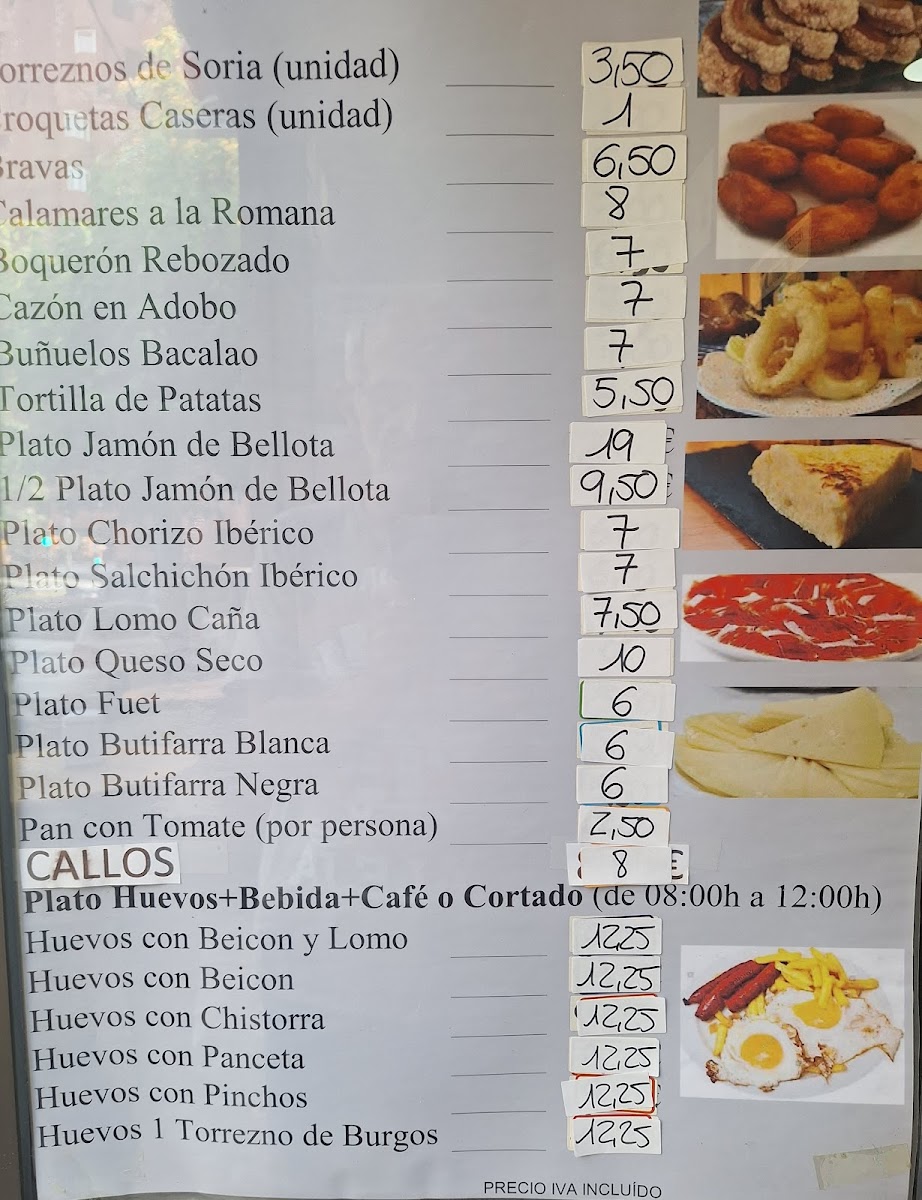 orreznos de Soria (unidad) 3,50
roquetas Caseras (unidad) 1
Bravas 6,50
Calamares a la Romana 8
Boquerón Rebozado 7
Cazón en Adobo 7
Buñuelos Bacalao 7
Tortilla de Patatas 5,50
Plato Jamón de Bellota 19 €
1/2 Plato Jamón de Bellota 9,50 €
Plato Chorizo Ibérico 7
Plato Salchichón Ibérico 7
Plato Lomo Caña 7,50
Plato Queso Seco 10
Plato Fuet 6
Plato Butifarra Blanca 6
Plato Butifarra Negra 6
Pan con Tomate (por persona) 2,50
CALLOS 8 €
Plato Huevos+Bebida+Café o Cortado (de 08:00h a 12:00h)
Huevos con Beicon y Lomo 12,25
Huevos con Beicon 12,25
Huevos con Chistorra 12,25
Huevos con Panceta 12,25
Huevos con Pinchos 12,25
Huevos 1 Torrezno de Burgos 12,25
PRECIO IVA INCLUÍDO